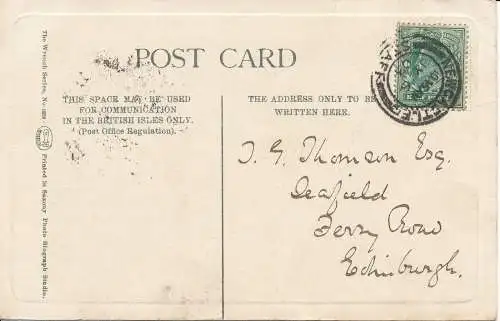 POST CARD
THIS SPACE MAY BE USED
FOR COMMUNICATION
IN THE BRITISH ISLES ONLY.
(Post Office Regulation).
THE ADDRESS ONLY TO BE
WRITTEN HERE.
J. G. Thomson Esq.
Seafield
Ferry Road
Edinburgh.
The Wrench Series, No.
Printed in Saxony